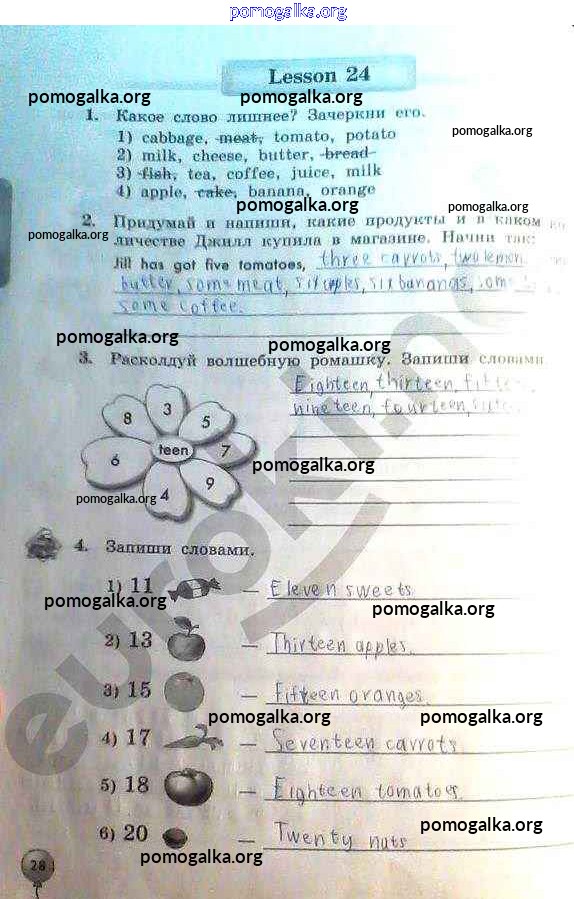 pomogalka.org
Lesson 24
pomogalka.org pomogalka.org
1. Какое слово лишнее? Зачеркни его.
pomogalka.org
1) cabbage, meat, tomato, potato
2) milk, cheese, butter, bread
3) fish, tea, coffee, juice, milk
4) apple, cake, banana, orange
pomogalka.org pomogalka.org
2. Придумай и напиши, какие продукты и в каком ко
pomogalka.org
личестве Джилл купила в магазине. Начни так:
Jill has got five tomatoes, three carrots, two lemon
butter, some meat, six apples, six bananas, som
some coffee.
pomogalka.org pomogalka.org
3. Расколдуй волшебную ромашку. Запиши словами
Eighteen, thirteen, fifteen,
nineteen, fourteen,
8 3 5
6 teen 7
pomogalka.org
4 9
pomogalka.org
4. Запиши словами.
1) 11 — Eleven sweets
pomogalka.org pomogalka.org
2) 13 — Thirteen apples.
3) 15 — Fifteen oranges.
pomogalka.org pomogalka.org
4) 17 — Seventeen carrots
5) 18 — Eighteen tomatoes
pomogalka.org
6) 20 — Twenty nuts
pomogalka.org
28
euroki.